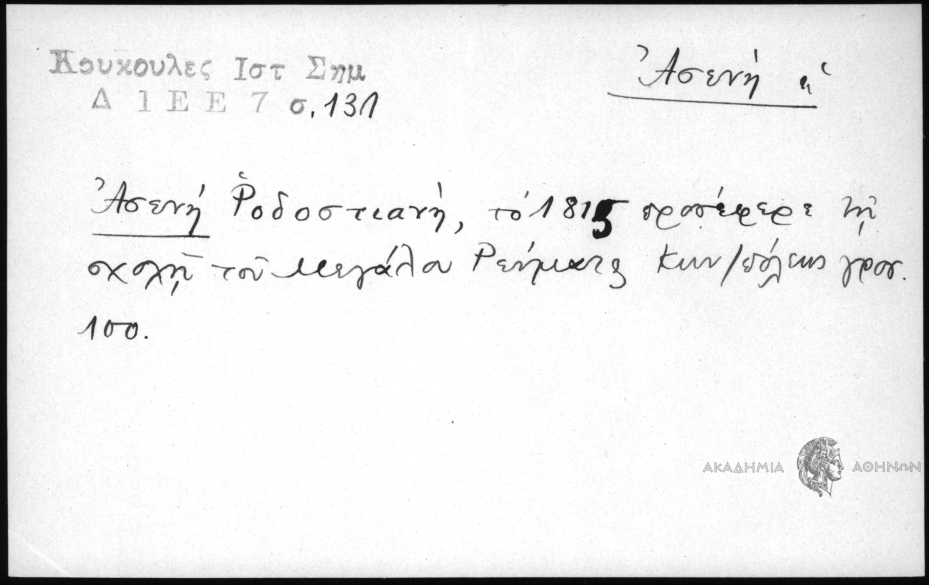 Κουκουλες Ιστ Σημ
Δ ΙΕΕ 7 σ. 131
Ἀσενή ἡ
Ἀσενή Ῥοδοστιανή, τό 1815 προσέφερε τῇ
σχολῇ τοῦ Μεγάλου Ρεύματος Κων/πόλεως γροσ.
100.
ΑΚΑΔΗΜΙΑ ΑΘΗΝΩΝ